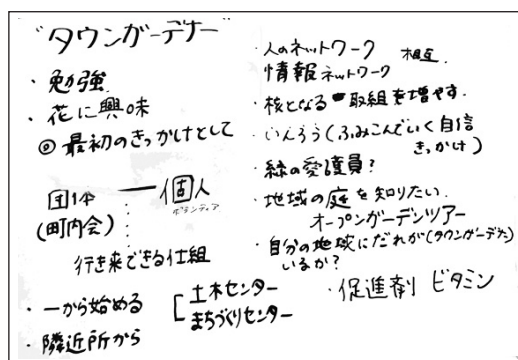 "タウンガーデナー"
・勉強
・花に興味
◎最初のきっかけとして
団体 ― 個人
ボランティア
(町内会)
行き来できる仕組
・一から始める
・隣近所から
土木センター
まちづくりセンター
・人のネットワーク 相互
情報ネットワーク
・核となる取組を増やす.
・いんろう(ふみこんでいく自信
きっかけ)
・緑の愛護員?
・地域の庭を知りたい.
オープンガーデンツアー
・自分の地域にだれが(タウンガーデナー)
いるか?
・促進剤 ビタミン